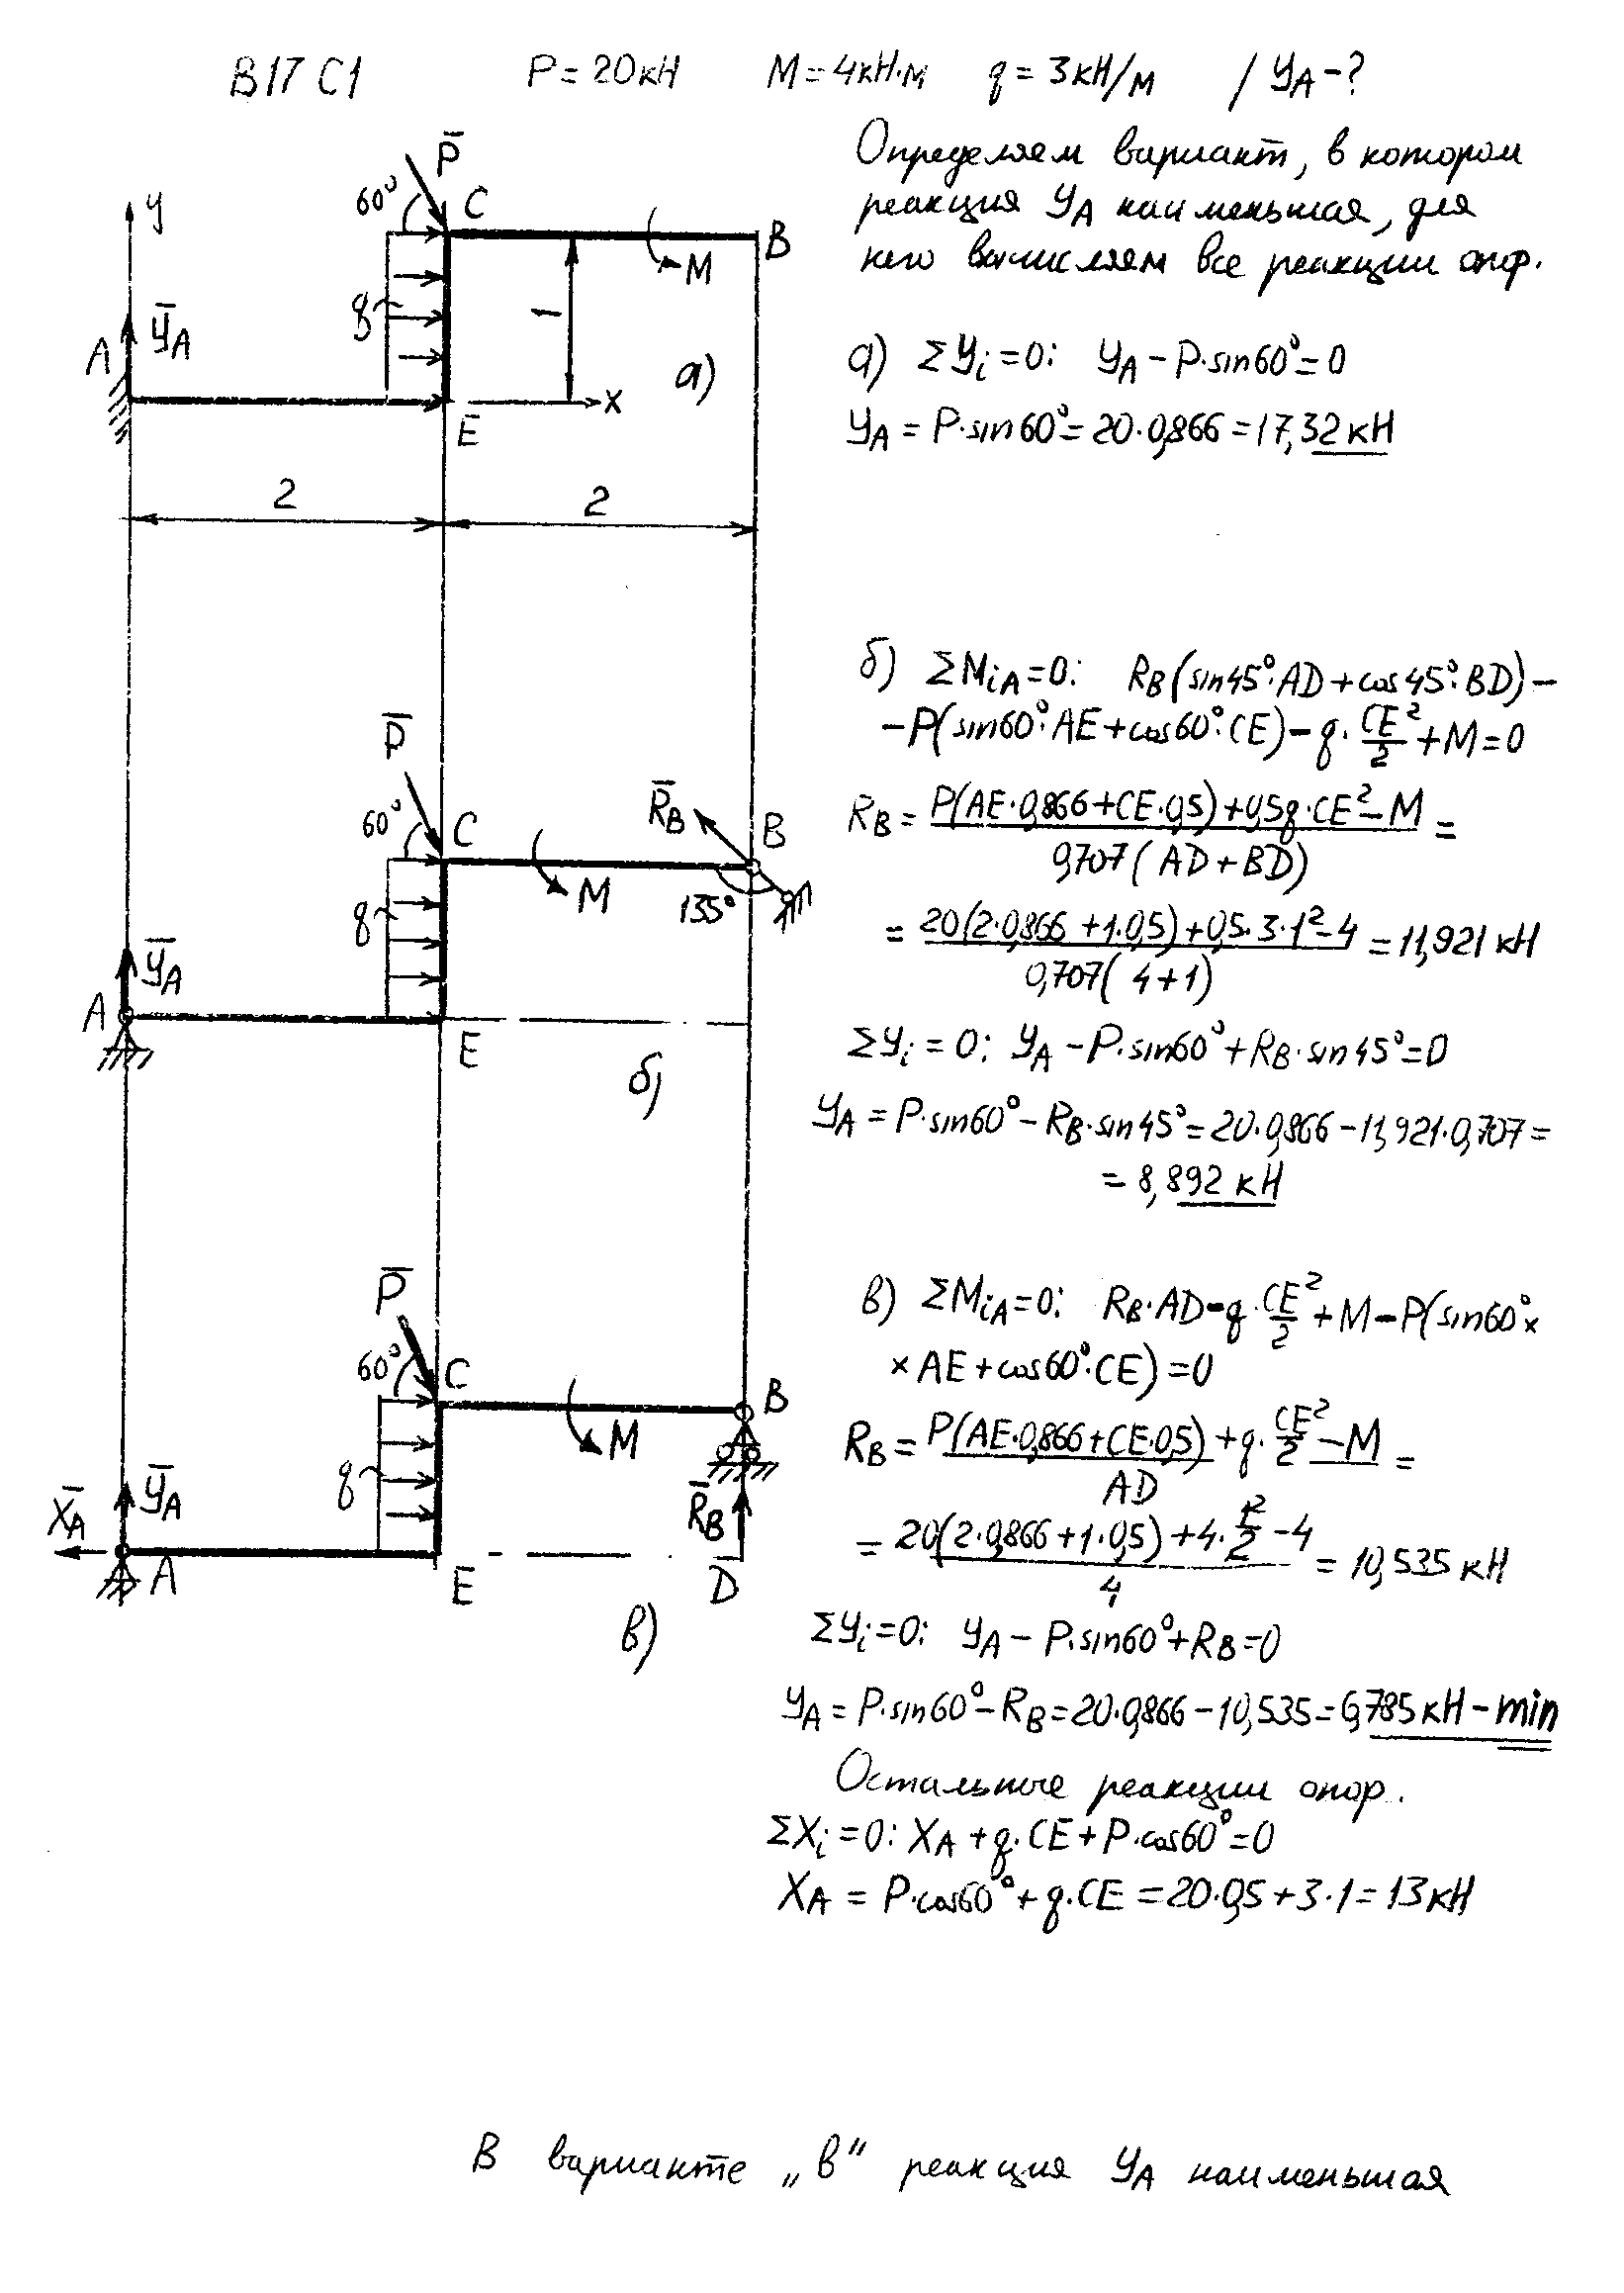 В17 С1 P = 20кН M = 4кН·м q = 3кН/м / YA - ?
Определяем вариант, в котором
реакция YA наименьшая, для
него вычисляем все реакции опор.
y
P̅
60°
C
B
M
q
Y̅A
A
1
а)
x
E
2
2
а) ΣYi = 0: YA - P·sin60° = 0
YA = P·sin60° = 20·0,866 = 17,32 кН
P̅
60°
C
R̅B
B
M
135°
q
Y̅A
A
E
б)
б) ΣMiA = 0: RB(sin45°·AD + cos45°·BD) -
- P(sin60°·AE + cos60°·CE) - q·CE²/2 + M = 0
RB = P(AE·0,866 + CE·0,5) + 0,5q·CE² - M / 0,707(AD + BD) =
= 20(2·0,866 + 1·0,5) + 0,5·3·1² - 4 / 0,707(4 + 1) = 11,921 кН
ΣYi = 0: YA - P·sin60° + RB·sin45° = 0
YA = P·sin60° - RB·sin45° = 20·0,866 - 11,921·0,707 =
= 8,892 кН
P̅
60°
C
B
M
q
X̅A
Y̅A
A
R̅B
E
D
в)
в) ΣMiA = 0: RB·AD - q·CE²/2 + M - P(sin60°×
× AE + cos60°·CE) = 0
RB = P(AE·0,866 + CE·0,5) + q·CE²/2 - M / AD =
= 20(2·0,866 + 1·0,5) + 4·1²/2 - 4 / 4 = 10,535 кН
ΣYi = 0: YA - P·sin60° + RB = 0
YA = P·sin60° - RB = 20·0,866 - 10,535 = 6,785 кН - min
Остальные реакции опор.
ΣXi = 0: XA + q·CE + P·cos60° = 0
XA = P·cos60° + q·CE = 20·0,5 + 3·1 = 13 кН
В варианте „в" реакция YA наименьшая